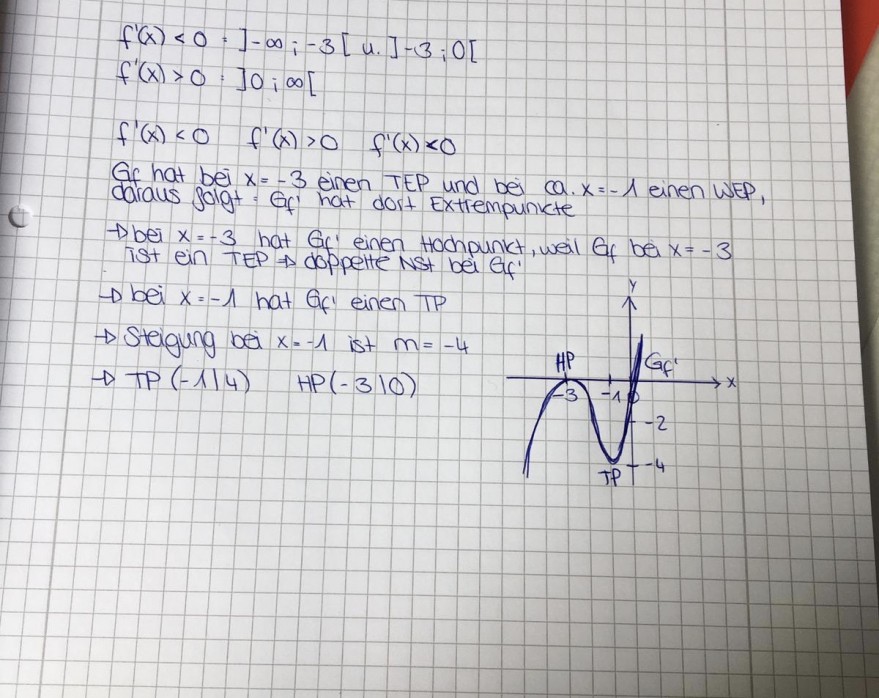 f'(x) < 0 : ]-∞ ; -3[ u. ]-3 ; 0[
f'(x) > 0 : ]0 ; ∞[
f'(x) < 0 f'(x) > 0 f'(x) < 0
Gf hat bei x = -3 einen TEP und bei ca. x = -1 einen WEP,
daraus folgt : Gf' hat dort Extrempunkte
→ bei x = -3 hat Gf' einen Hochpunkt, weil Gf bei x = -3
ist ein TEP ⇒ doppelte NSt bei Gf'
→ bei x = -1 hat Gf' einen TP
→ Steigung bei x = -1 ist m = -4
→ TP (-1|4) HP (-3|0)
y
HP
Gf'
x
-3
-1
0
-2
-4
TP